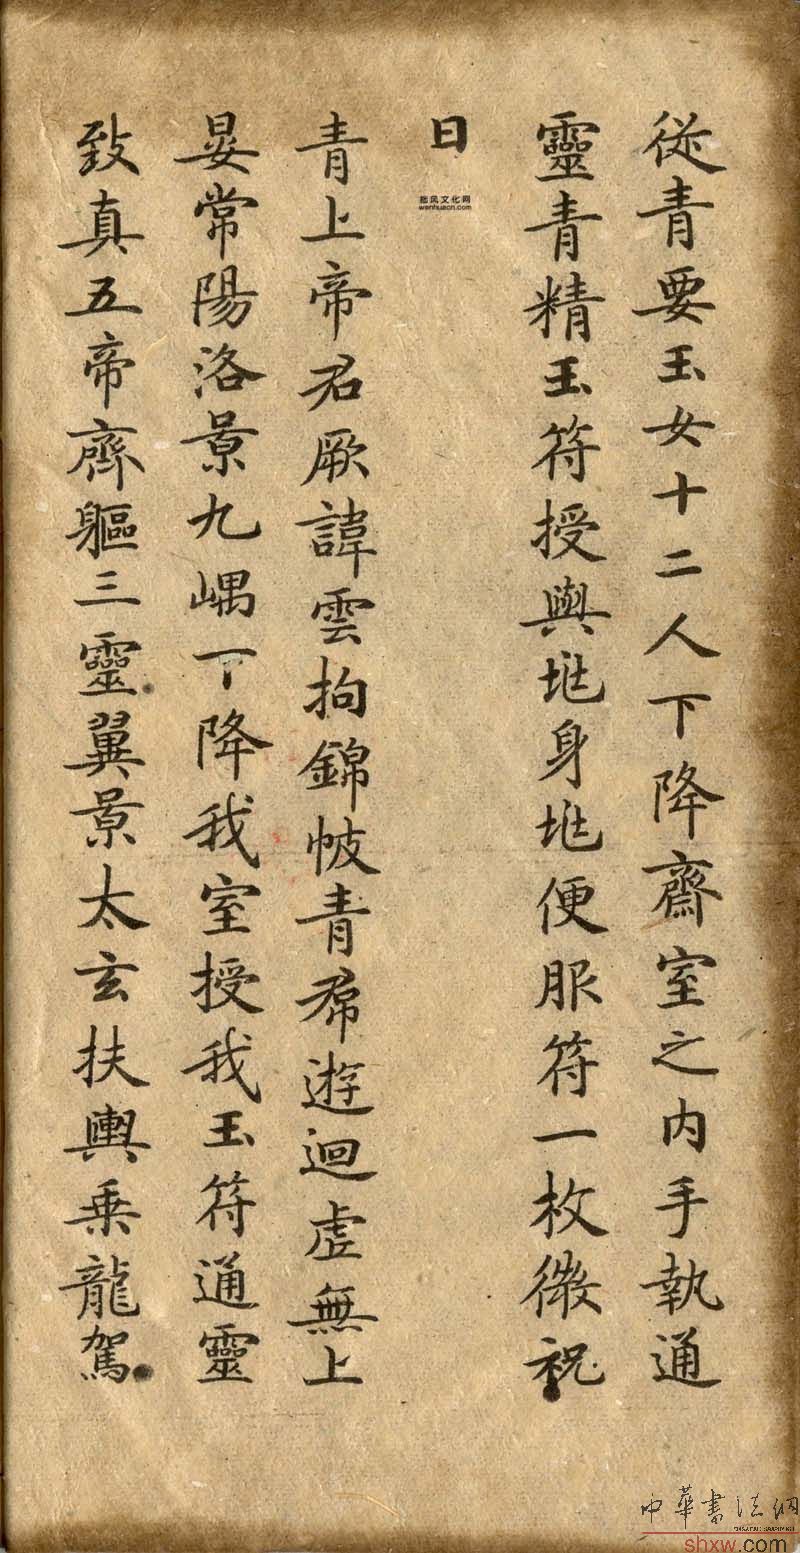 従青要玉女十二人下降齋室之内手執通
靈青精玉符授與兆身兆便服符一枚微祝
曰
青上帝君厥諱雲拘錦帔青帬遊迴虛無上
晏常陽洛景九嵎下降我室授我玉符通靈
致真五帝齊軀三靈翼景太玄扶輿乗龍駕
拙风文化网
wenhuacn.com
中華書法網
shxw.com